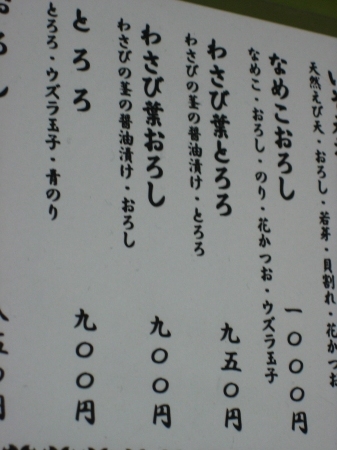 天然えび天・おろし・若芽・貝割れ・花かつお
なめこおろし
なめこ・おろし・のり・花かつお・ウズラ玉子
一〇〇〇円
わさび葉とろろ
わさびの茎の醤油漬け・とろろ
九五〇円
わさび葉おろし
わさびの茎の醤油漬け・おろし
九〇〇円
とろろ
とろろ・ウズラ玉子・青のり
九〇〇円
おろし
八五〇円